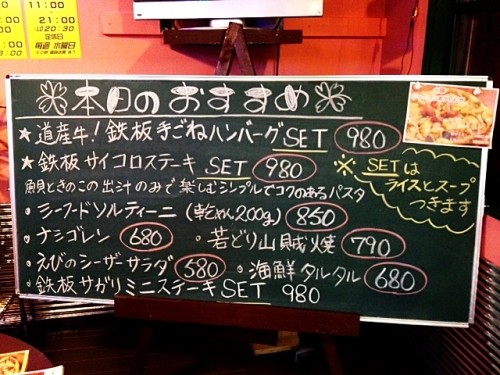 11:00
21:00
20:30
定休日
毎週 水曜日
本日のおすすめ
★道産牛!鉄板手ごねハンバーグSET 980
★鉄板サイコロステーキ SET 980
※SETは
ライスとスープ
つきます
魚貝ときのこの出汁のみで楽しむシンプルでコクのあるパスタ
・シーフードソルティーニ(乾めん200g) 850
・ナシゴレン 680
・若どり山賊焼 790
・えびのシーザーサラダ 580
・海鮮タルタル 680
・鉄板サガリミニステーキSET 980